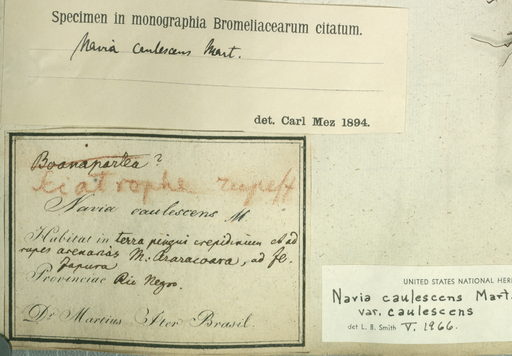 Specimen in monographia Bromeliacearum citatum.
Navia caulescens Mart.
det. Carl Mez 1894.
Boonapartea?
Navia caulescens M
Habitat in terra pingui crepidinum et ad
rupes arenarias M. Araracoara, ad fl.
Japura
Provinciae Rio Negro.
Dr Martius Iter Brasil.
UNITED STATES NATIONAL HER
Navia caulescens Mart.
var. caulescens
det L. B. Smith V. 1966.